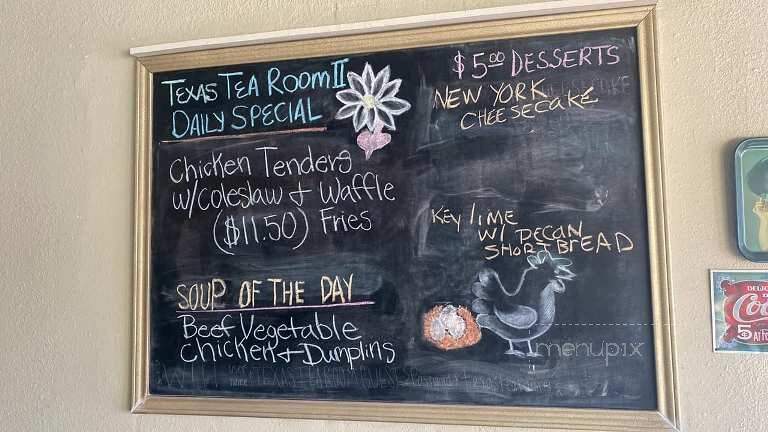 TEXAS TEA ROOM II
DAILY SPECIAL
Chicken Tenders
w/Coleslaw + Waffle
($11.50) Fries
SOUP OF THE DAY
Beef Vegetable
Chicken + Dumplins
$5.00 DESSERTS
NEW YORK
CHEESECAKE
KEY lIME
W/ PECAN
SHORTBREAD
menupix
5